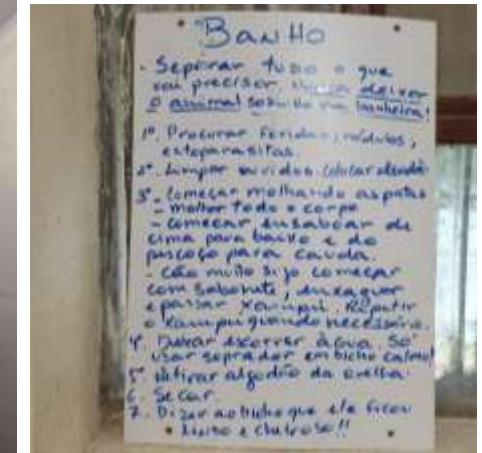 BANHO
- Separar tudo o que
vai precisar. Nunca deixar
o animal sozinho na banheira!
1º. Procurar feridas, nódulos,
ectoparasitas.
2º. Limpar ouvidos. Colocar algodão
3º. Começar molhando as patas
- molhar todo o corpo
- começar ensaboar de
cima para baixo e do
pescoço para cauda.
- Cão muito sujo começar
com sabonete, enxaguar
e passar xampú. Repetir
o xampu quando necessário.
4º. Deixar escorrer água. Só
usar soprador em bicho calmo!
5º. Retirar algodão da orelha.
6. Secar.
7. Dizer ao bicho que ele ficou
lindo e cheiroso!!